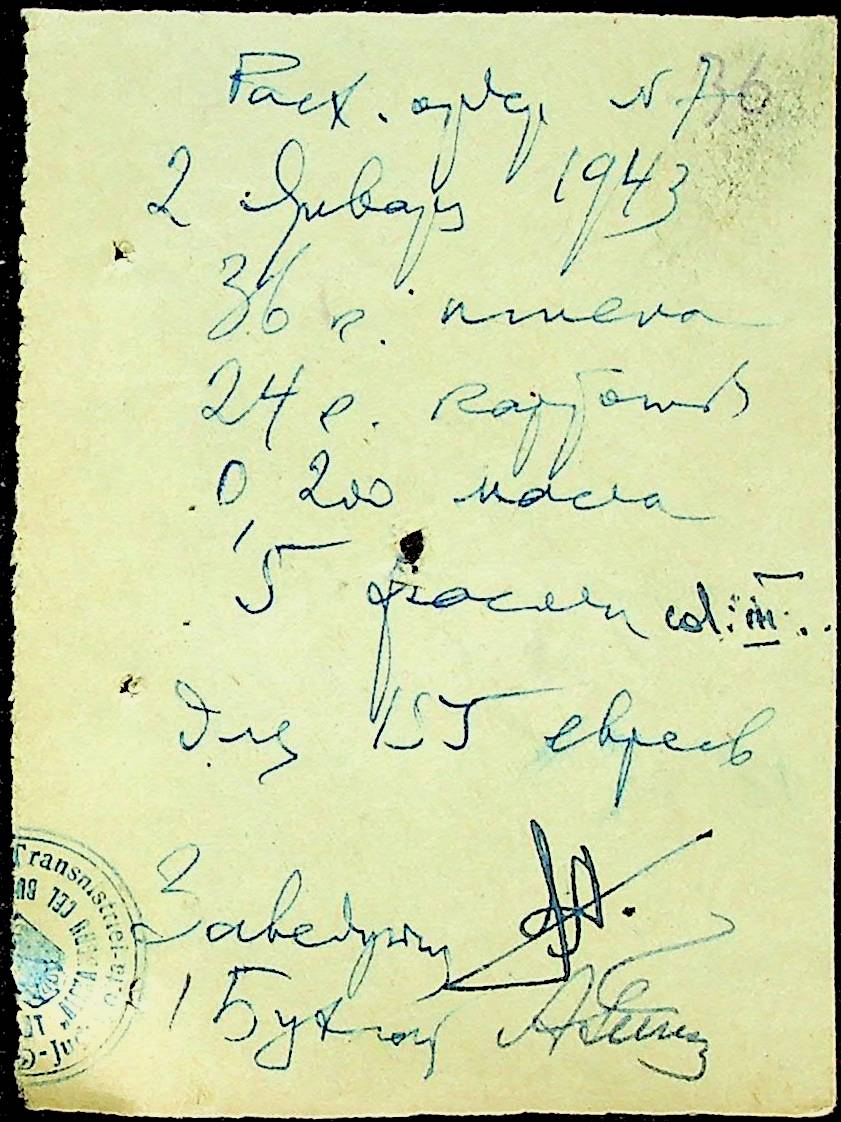 Расх. ордер N 7
36
2 Января 1943
36 к. пшена
24 к. картошк
0,200 масла
5 фасоли col: III
Для 155 евреев
Заведующ
Бухгал
Transnistriei